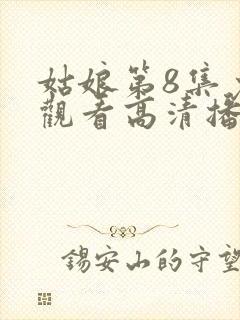 姑娘第8集
觀看高清播
錫安山的守望